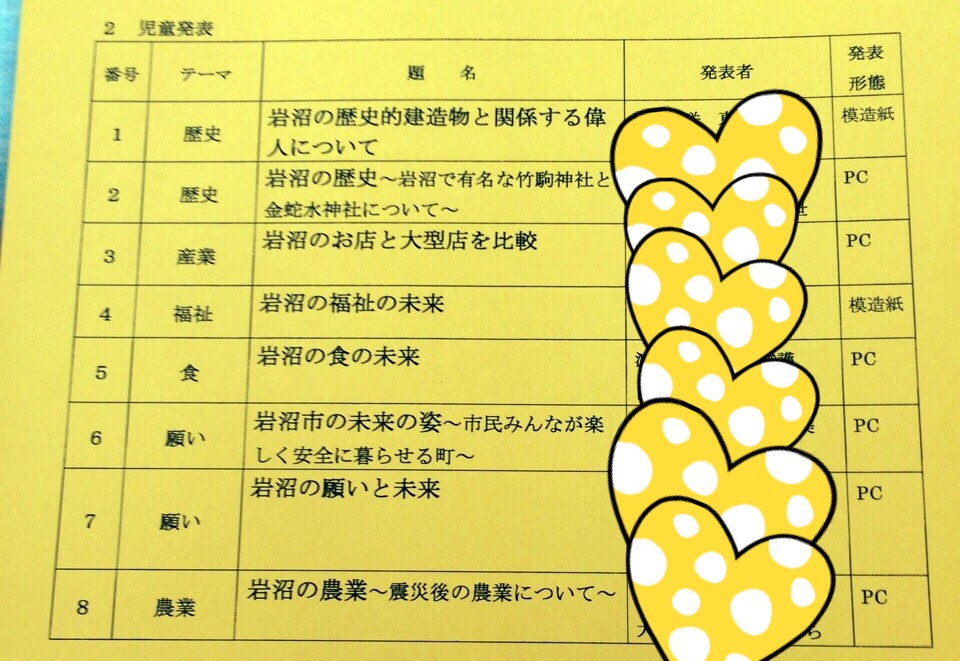 2 児童発表
番号 テーマ 題 名 発表者 発表形態
1 歴史 岩沼の歴史的建造物と関係する偉 模造紙
人について
2 歴史 岩沼の歴史～岩沼で有名な竹駒神社と PC
金蛇水神社について～
3 産業 岩沼のお店と大型店を比較 PC
4 福祉 岩沼の福祉の未来 模造紙
5 食 岩沼の食の未来 PC
6 願い 岩沼市の未来の姿～市民みんなが楽 PC
しく安全に暮らせる町～
7 願い 岩沼の願いと未来 PC
8 農業 岩沼の農業～震災後の農業について～ PC